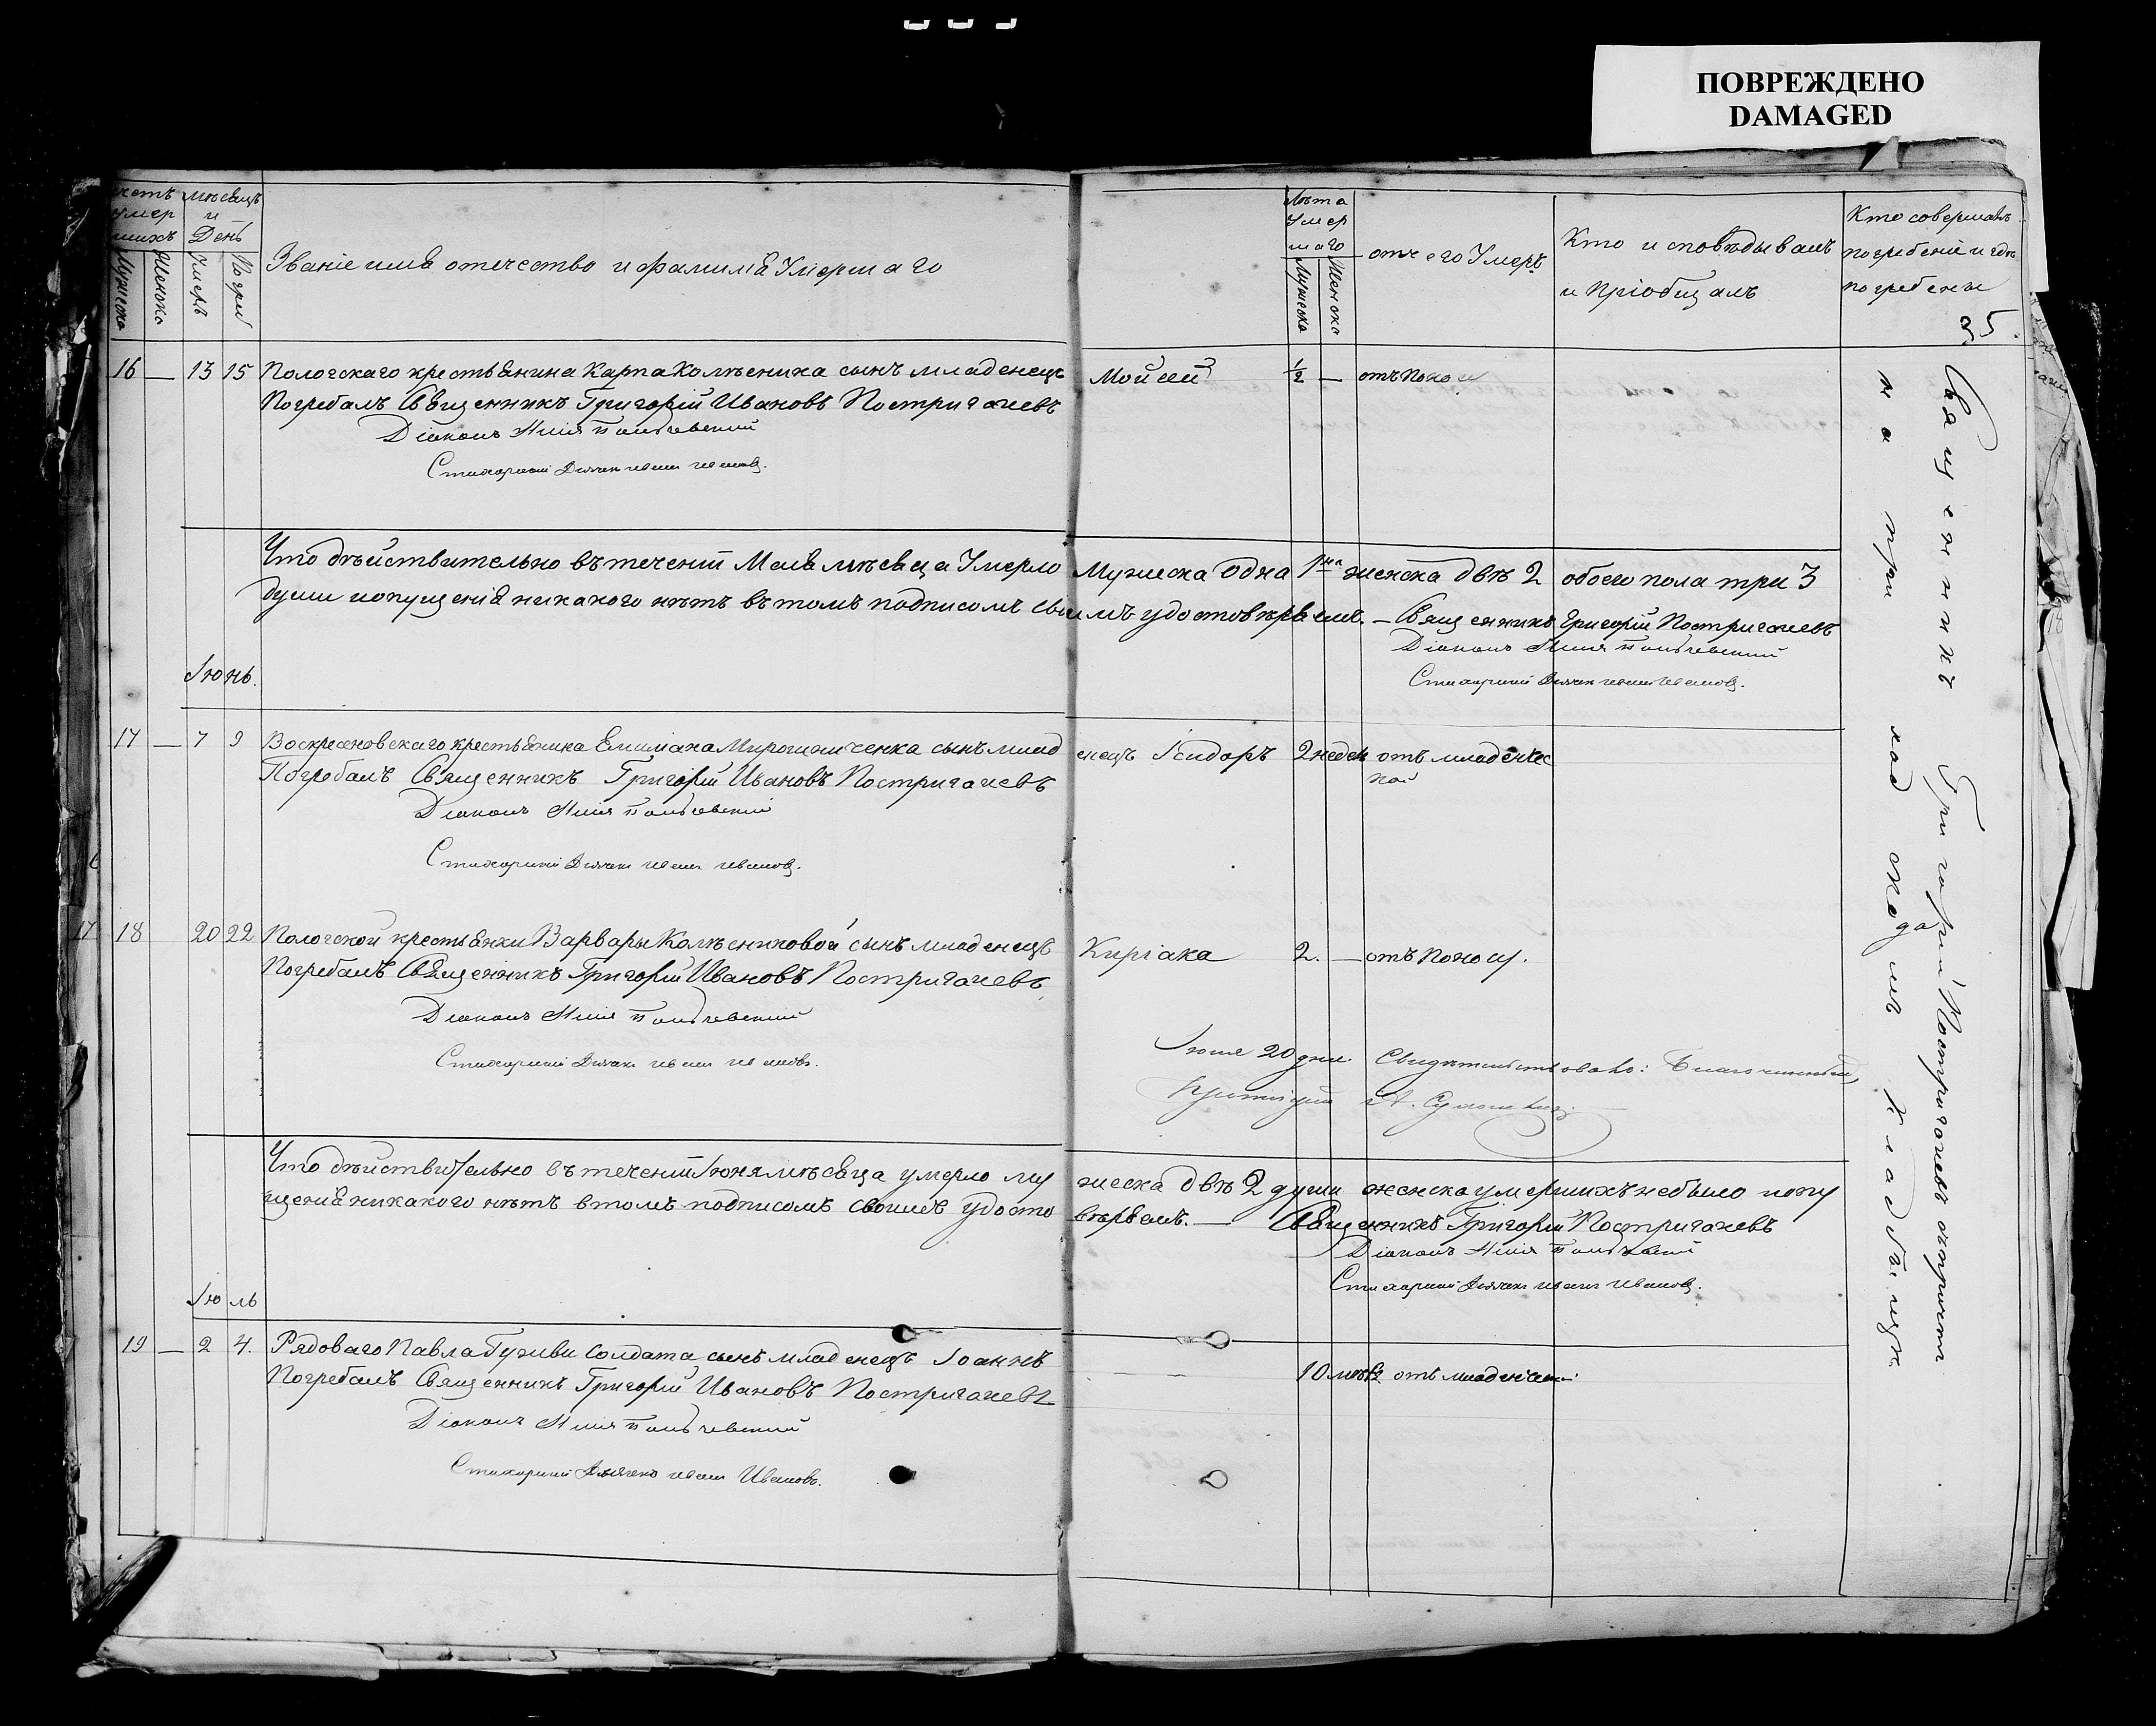 ПОВРЕЖДЕНО
DAMAGED
мѣсяцъ
умер
и
шихъ
День
Мужеска
Женска
Умеръ
Погреб
Званіе имя отечество и фамилія Умершаго
Лѣта
Умер
шаго
Мужеска
Женска
отчего Умеръ
Кто исповѣдывалъ
и пріобщалъ
Кто совершалъ
погребеніе и гдѣ
погребены
35.
16 — 13 15 Пологскаго крестьянина Карпа Колѣсника сынъ младенецъ Мойсей 1/2 — отъ поносу
Погребалъ Священникъ Григорій Ивановъ Постригачевъ
Діаконъ
Стихарный Дьячекъ Иванъ Ивановъ.
Что дѣйствительно въ теченіи Маія мѣсяца Умерло Мужеска одна 1на женска двѣ 2 обоего пола три 3
души и опущенія никакого нѣтъ въ томъ подписомъ своимъ удостовѣряемъ. — Священникъ Григорій Постригачевъ
Діаконъ
Стихарный Дьячекъ Иванъ Ивановъ.
Іюнь.
17 — 7 9 Воскресеновскаго крестьянина Емиліана Мирошниченка сынъ млад енецъ Ісидоръ 2 недел отъ младенчес
кой
Погребалъ Священникъ Григорій Ивановъ Постригачевъ
Діаконъ
Стихарный Дьячекъ Иванъ Ивановъ.
18 20 22 Пологской крестьянки Варвары Колѣсниковой сынъ младенецъ Киріака 2. — отъ поносу.
Погребалъ Священникъ Григорій Ивановъ Постригачевъ
Діаконъ
Стихарный Дьячекъ Иванъ Ивановъ.
20 дня. Свидѣтельствовалъ: Благочинный,
Протоіерей А.
Что дѣйствительно въ теченіи Іюня мѣсяца умерло му жеска двѣ 2 души женска умершихъ не было и опу
щенія никакого нѣтъ в томъ подписомъ своимъ удосто вѣряемъ. — Священникъ Григорій Постригачевъ
Діаконъ
Стихарный Дьячекъ Иванъ Ивановъ.
Іюль
19 — 2 4. Рядоваго Павла Гуживи Солдата сынъ младенецъ Іоаннъ 10 мѣсяц. отъ младенческой
Погребалъ Священникъ Григорій Ивановъ Постригачевъ
Діаконъ
Стихарный Дьячекъ Иванъ Ивановъ.
Священникъ Григорій Постригачевъ съ причтомъ
на приходскомъ Кладбищѣ